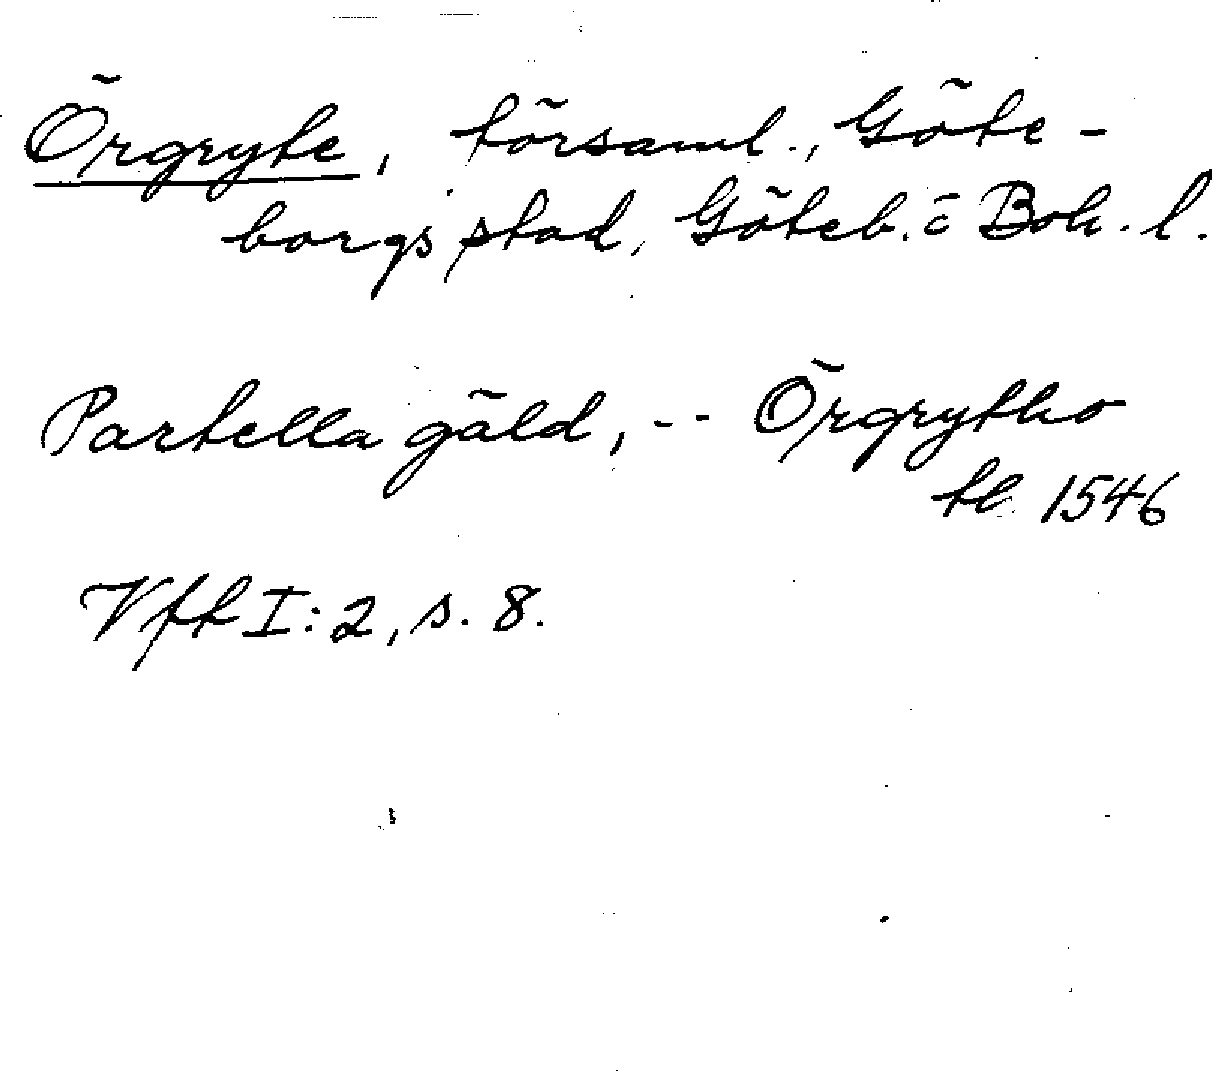 Örgryte, församl., Göte-
borgs stad, Göteb. o Boh. l.
Partella gäld, -- Örgrytho
tl 1546
Vft I:2, s. 8.